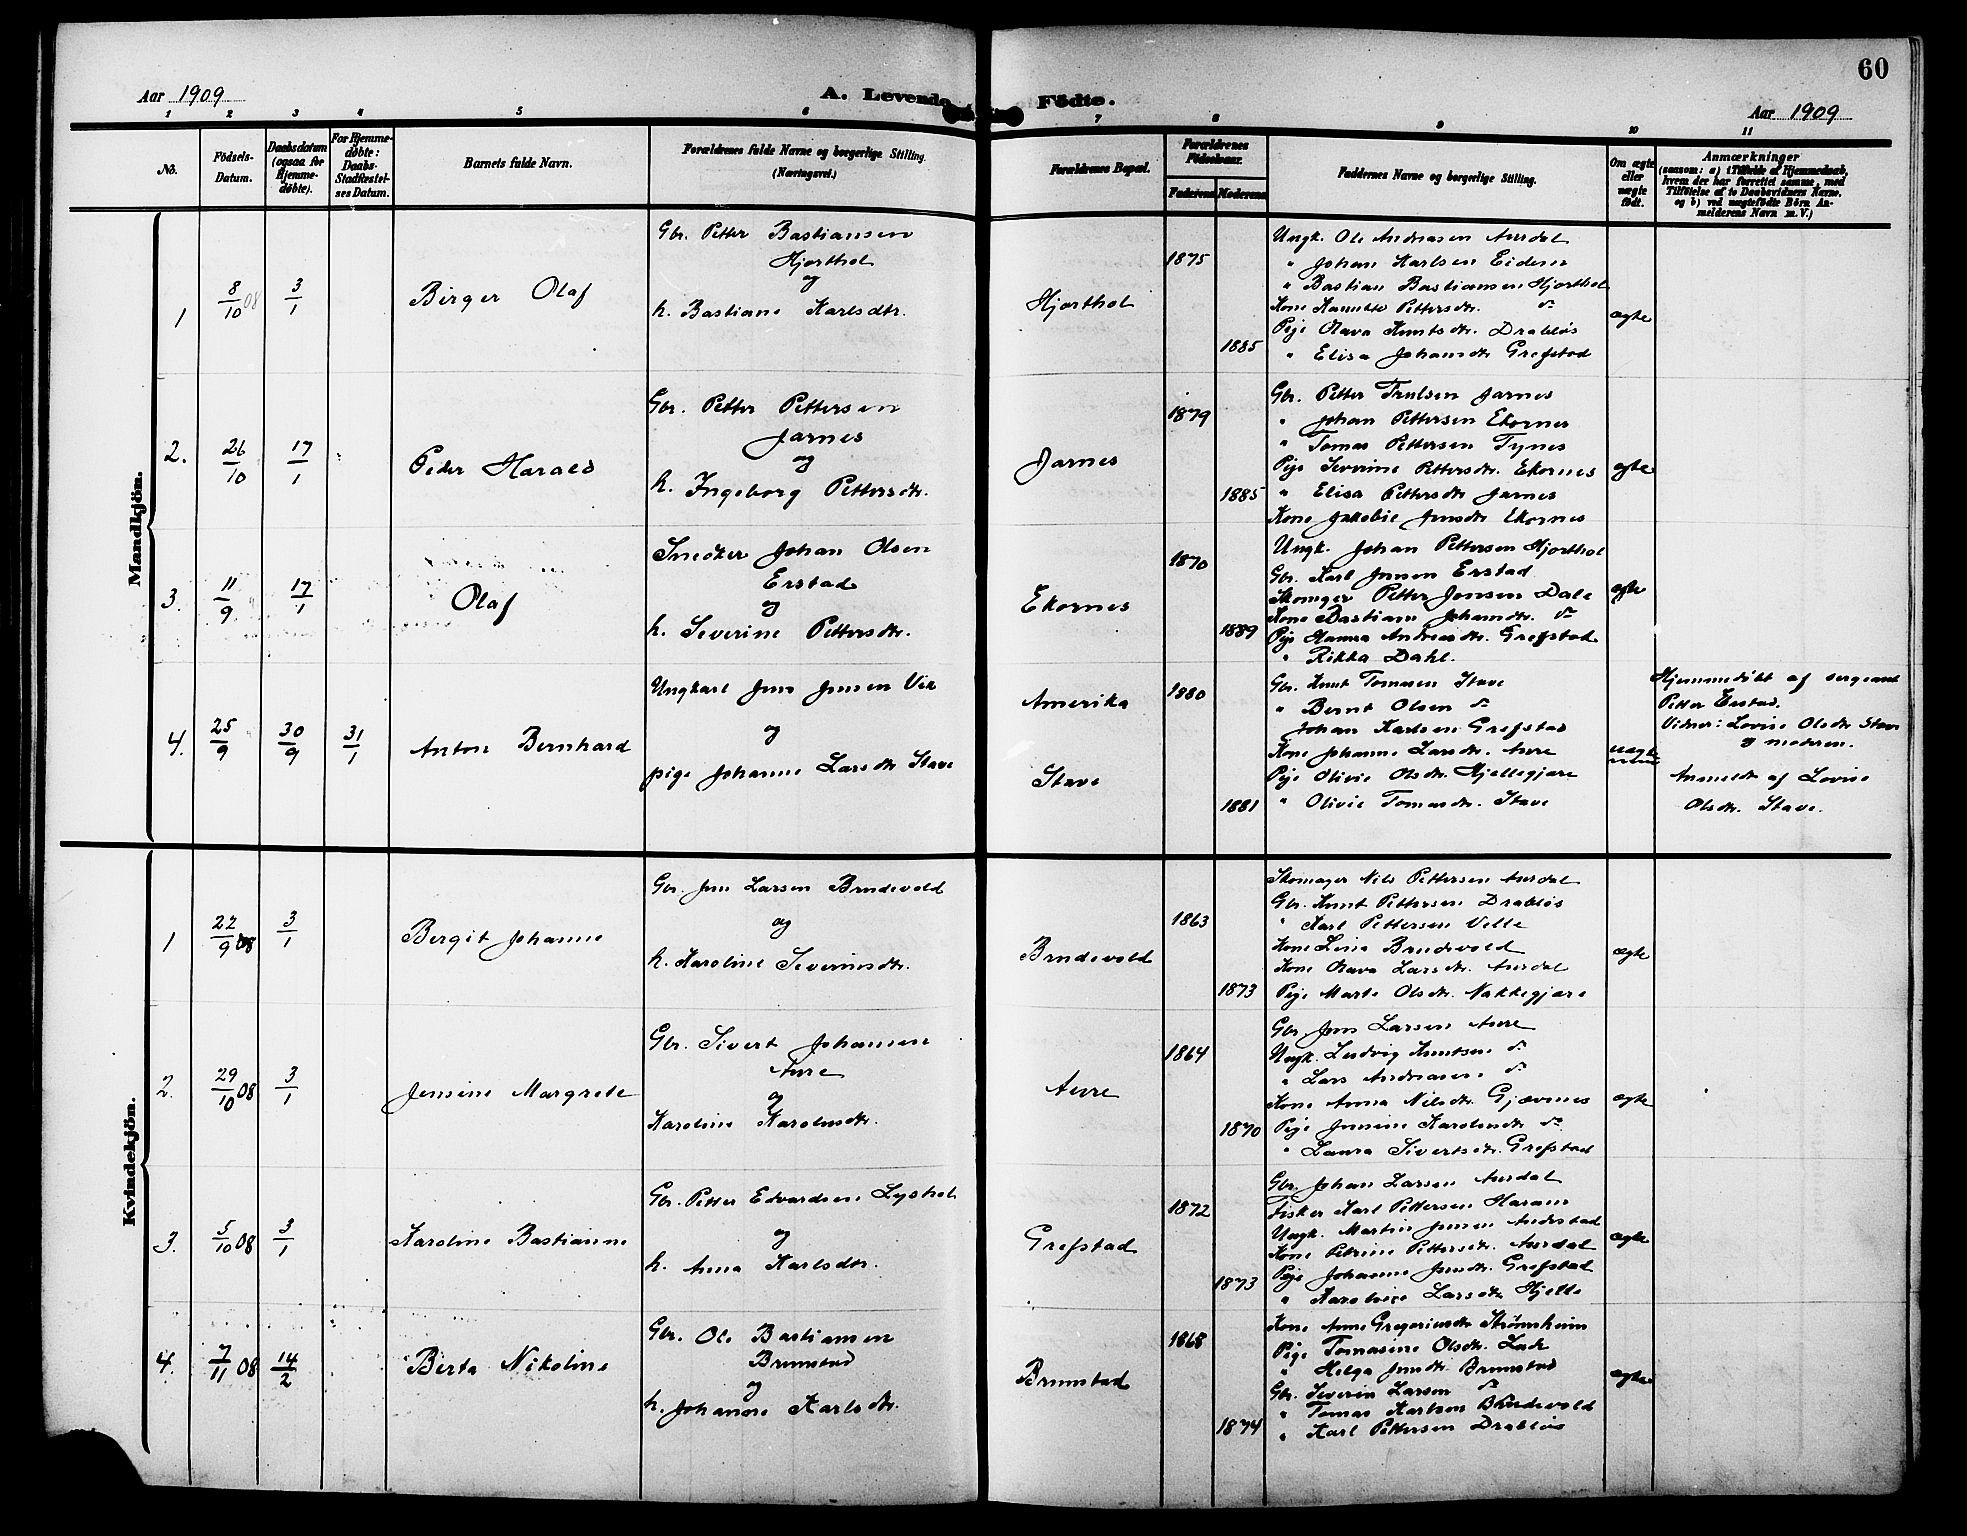 60
Aar 1909
A. Levende Födte.
Aar 1909
1 2 3 4 5 6 7 8 9 10 11
No.
Födsels-
Datum.
Daabsdatum
(ogsaa for
Hjemme-
döbte).
For Hjemme-
döbte:
Daabs-
Stadfæstel-
ses Datum.
Barnets fulde Navn.
Forældrenes fulde Navne og borgerlige Stilling.
(Næringsvei.)
Forældrenes Bopæl.
Forældrenes
Födselsaar.
Faderens Moderens
Faddernes Navne og borgerlige Stilling.
Om ægte
eller
uægte
født.
Anmærkninger
(saasom: a) i Tilfælde af Hjemmedaab,
hvem der har forrettet samme, med
Tilføielse af to Daabsvidners Navne.
og b) ved uægtefödte Börn An-
melderens Navn m. V.)
Mandkjön.
1 8/10 08 3/1
Birger Olaf
Gbr. Petter Bastiansen
Hjorthol
og
h. Bastiane Karlsdtr.
Hjorthol
1875
1885
Ungk. Ole Andreasen Aurdal
" Johan Karlsen Eidem
" Bastian Bastiansen Hjorthol
Kone Hanette Pettersdtr. do
Pige Olava Knutsdtr. Drabløs
" Elisa Johansdtr Grefstad
ægte
2. 26/10 17/1
Peder Harald
Gbr. Petter Pettersen
Jarnes
og
h. Ingeborg Pettersdtr.
Jarnes
1879
1885
Gbr. Petter Trulsen Jarnes
" Johan Pettersen Ekornes
" Tomas Pettersen Tynes
Pige Severine Pettersdtr. Ekornes
" Elisa Pettersdtr Jarnes
Kone Jakobie Jensdtr Ekornes
ægte
3. 11/9 17/1
Olaf
Snedker Johan Olsen
Erstad
og
h. Severine Pettersdtr.
Ekornes
1870
1889
Ungk. Johan Pettersen Hjorthol
Gbr. Karl Jensen Erstad
Skomager Petter Jensen Dale
Kone Bastiane Johansdtr. do
Pige Hanna Andreasdtr. Grefstad
" Rikka Dahl.
ægte
4. 25/9 30/9 31/1
Anton Bernhard
Ungkarl Jens Jensen Vik
og
pige Johanne Larsdtr Stave
Amerika
Stave
1880
1881
Gbr. Knut Tomasen Stave
" Bernt Olsen do
Johan Karlsen Grefstad
Kone Johanne Larsdtr. Aure
Pige Olivie Olsdtr. Hjellegjære
" Olivie Tomasdtr. Stave
uægte
Hjemmedøbt af sergeant
Petter Erstad.
Vidner: Lovise Olsdtr Stave
og moderen.
Anmeldt af Lovise
Olsdtr. Stave.
Kvindekjön.
1 22/9 08 3/1
Bergit Johanne
Gbr. Jens Larsen Brudevold
og
h. Karoline Severinsdtr.
Brudevold
1863
1873
Skomager Nils Pettersen Aurdal
Gbr. Knut Pettersen Drabløs
" Karl Pettersen Velle
Kone Lina Brudevold
Kone Olava Larsdtr. Aurdal
Pige Marte Olsdtr. Nakkegjære
ægte
2. 29/10 08 3/1
Jensine Margrete
Gbr. Sivert Johansen
Aure
og
Karoline Karolusdtr.
Aure
1864
1870
Gbr Jens Larsen Aure
Ungk. Ludvig Knutsen do
" Lars Andreasen do
Kone Anna Nilsdtr. Gjævenes
Pige Jensine Karolusdtr do
" Laura Sivertsdtr. Grefstad
ægte
3. 5/10 08 3/1
Karoline Bastianne
Gbr. Petter Edvardsen Lyshol
og
h. Anna Karlsdtr.
Grefstad
1872
1873
Gbr. Johan Larsen Aurdal
Fisker Karl Pettersen Haram
Ungk. Martin Jensen Andestad
Kone Petrine Pettersdtr. Aurdal
Pige Johanne Jensdtr. Grefstad
" Karoline Larsdtr Hjelle
ægte
4. 7/11 08 14/2
Berta Nikoline
Gbr. Ole Bastiansen
Brunstad
og
h. Johanne Karlsdtr.
Brunstad
1868
1874
Kone Anne Gregoriusdtr Strømsheim
Pige Tomasine Olsdtr. Lade
" Helga Jensdtr Brunstad
Gbr. Severin Larsen do
" Tomas Karlsen Brudevold
" Karl Pettersen Drabløs
ægte